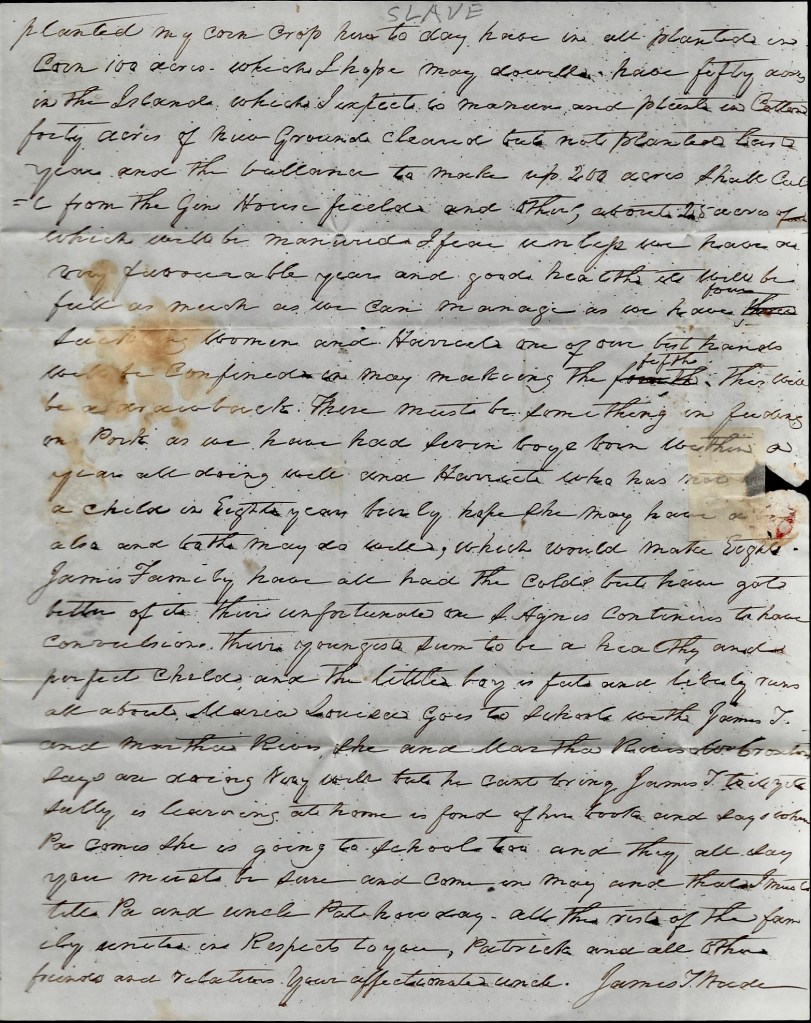 SLAVE
planted my corn crop here to day have in all planted in
Corn 100 acres. which I hope may do well. have fifty acres
in the Island which I expect to manure and plant in Cotton
forty acres of New Ground cleared but not planted last
year and the ballance to make up 200 acres shall Cul
=t from the Gin House field and other, about 25 acres of
which will be manured I fear unless we have a
very favourable year and good health it will be
full as much as we can manage as we have four three
sucking women and Harriet one of our best hands
will be confined in may making the fifth fourth. This will
be a drawback. There must be something in feeding
on Pork as we have had seven boys born within a
year all doing well and Harriet who has not
a child in Eight years I hope she may have a
also and both may do well, which would make Eight.
James Family have all had the cold but have got
better of it their unfortunate one S. Agnes continues to have
convulsions. Their youngest seem to be a healthy and
perfect child, and the little boy is fat and lively runs
all about. Maria Louisa goes to school with James T.
and Martha Rives, she and Martha Rives
says are doing Very well but he cant bring James T.
Sally is learning at home is fond of her book and says when
Pa comes she is going to school too and they all say
you must be sure and come in may and that I must
tell Pa and uncle Pat howday. all the rest of the fam
ily unites in Respects to you, Patrick and all other
friends and relations. Your affectionate uncle. James T. Wade